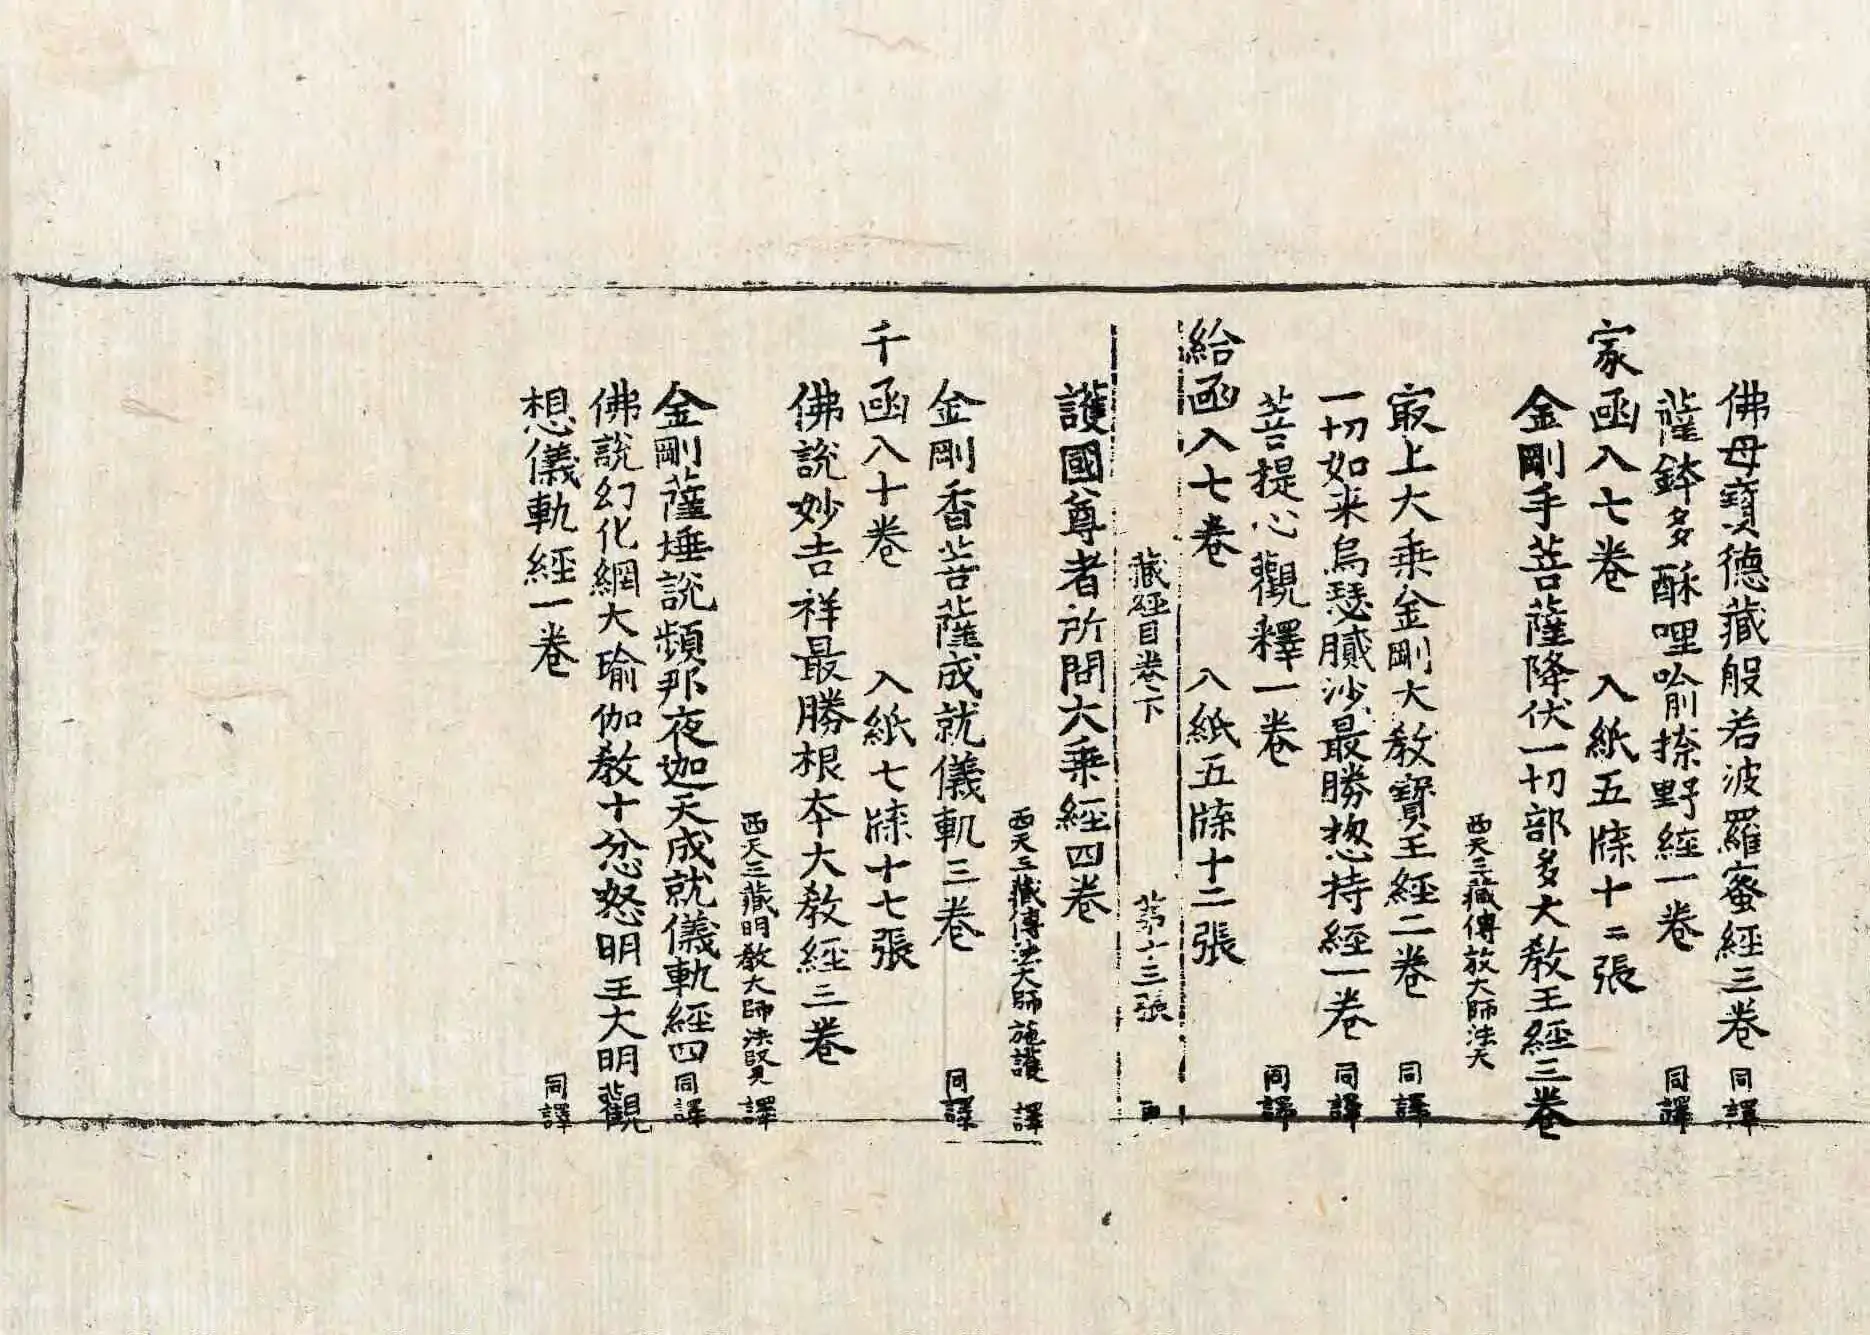 佛母寶德藏般若波羅蜜經三卷 同譯
薩鉢多酥哩喻捺野經一卷 同譯
家函入七卷 入紙五牒十二張
金剛手菩薩降伏一切部多大教王經三卷
西天三藏傳放大師法天
㝡上大乘金剛大教寶王經二卷 同譯
一切如来烏瑟膩沙最勝揔持經一卷 同譯
菩提心觀釋一卷 同譯
給函入七卷 入紙五牒十二張
藏經目卷下 苐十三張
護國尊者所問大乗經四卷
西天三藏傳法大師施護 譯
金剛香菩薩成就儀軌三卷 同譯
千函入十卷 入紙七牒十七張
佛說妙吉祥最勝根本大教經三卷
西天三藏明教大師法賢 譯
金剛薩埵說頻那夜迦天成就儀軌經四 同譯
佛說幻化網大瑜伽教十忿怒明王大明觀
想儀軌經一卷 同譯